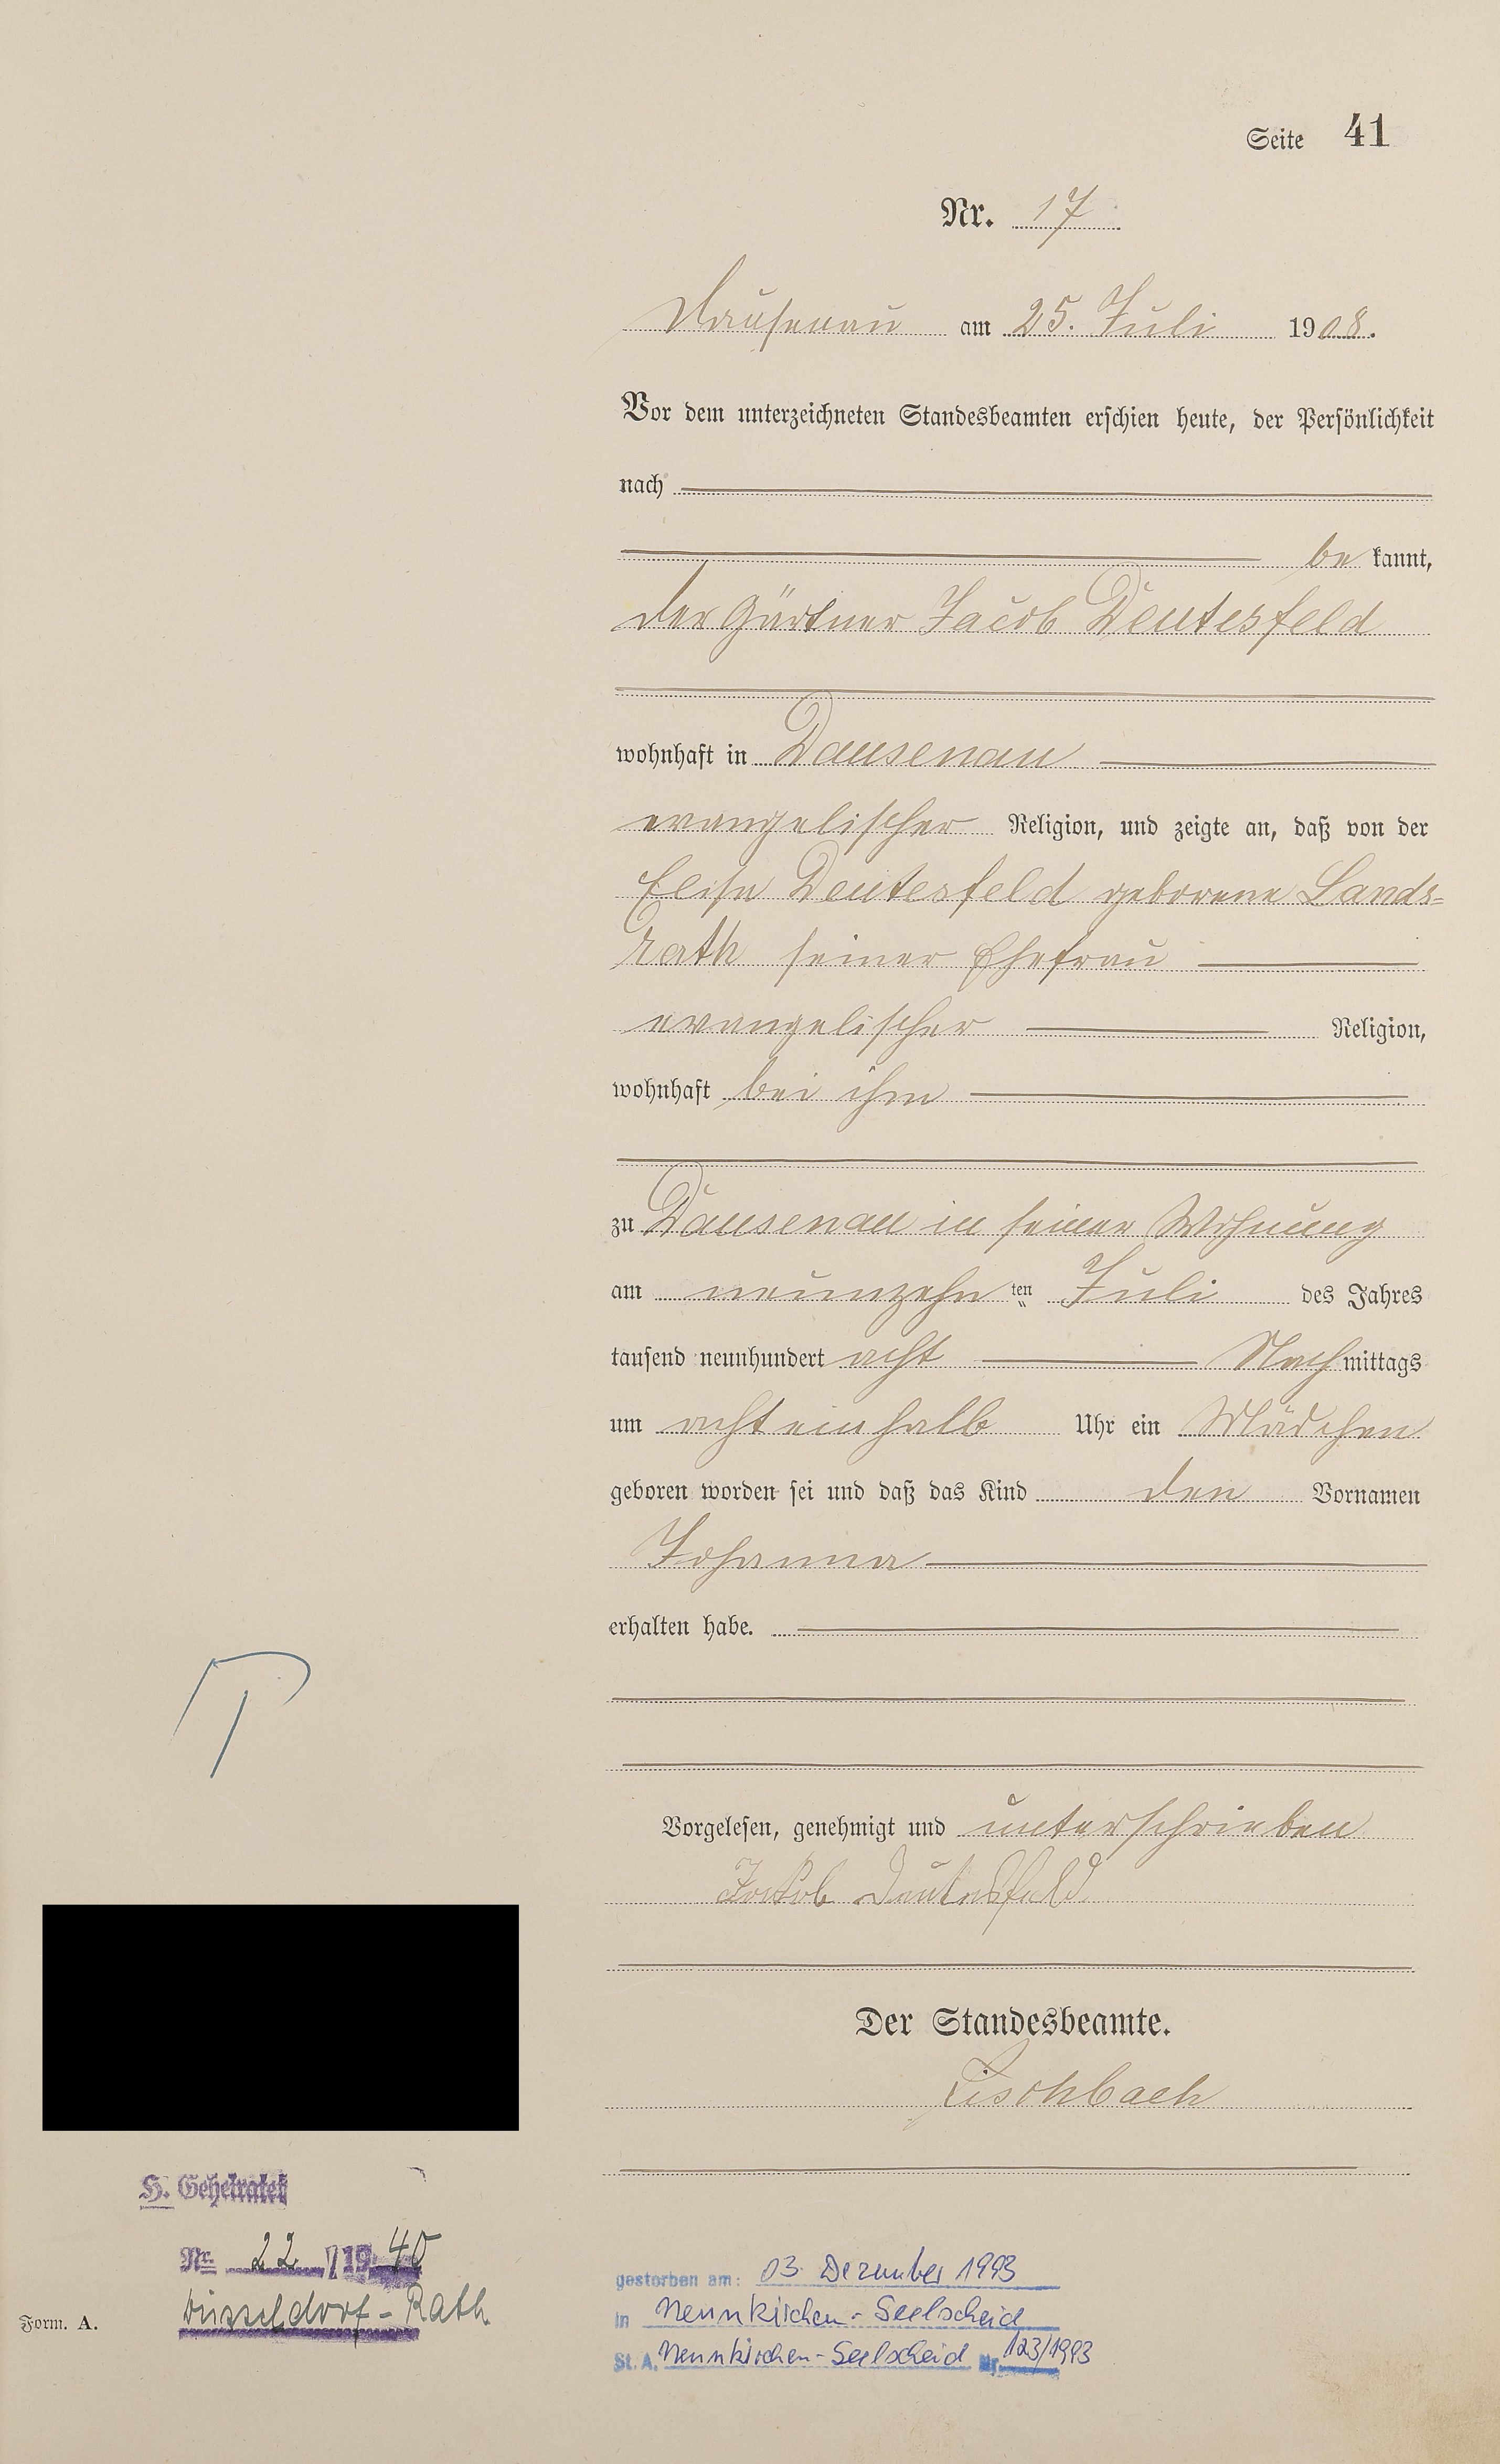 Seite 41
Nr. 17
Dausenau am 25. Juli 1908.
Vor dem unterzeichneten Standesbeamten erschien heute, der Persönlichkeit
nach
be kannt,
der Gärtner Jacob Deutesfeld
wohnhaft in Dausenau
evangelischer Religion, und zeigte an, daß von der
Elise Deutesfeld geborene Lands=
rath seiner Ehefrau
evangelischer Religion,
wohnhaft bei ihm
zu Dausenau in seiner Wohnung
am neunzehn ten Juli des Jahres
tausend neunhundert acht Nachmittags
um acht einhalb Uhr ein Mädchen
geboren worden sei und daß das Kind den Vornamen
Johanna
erhalten habe.
Vorgelesen, genehmigt und unterschrieben
Jakob Deutesfeld
Der Standesbeamte.
Fischbach
H. Geheiratet
Nr. 22 / 1940
Düsseldorf-Rath
Form. A.
gestorben am: 03. Dezember 1993
in Neunkirchen-Seelscheid
St. A. Neunkirchen-Seelscheid Nr. 123/1993